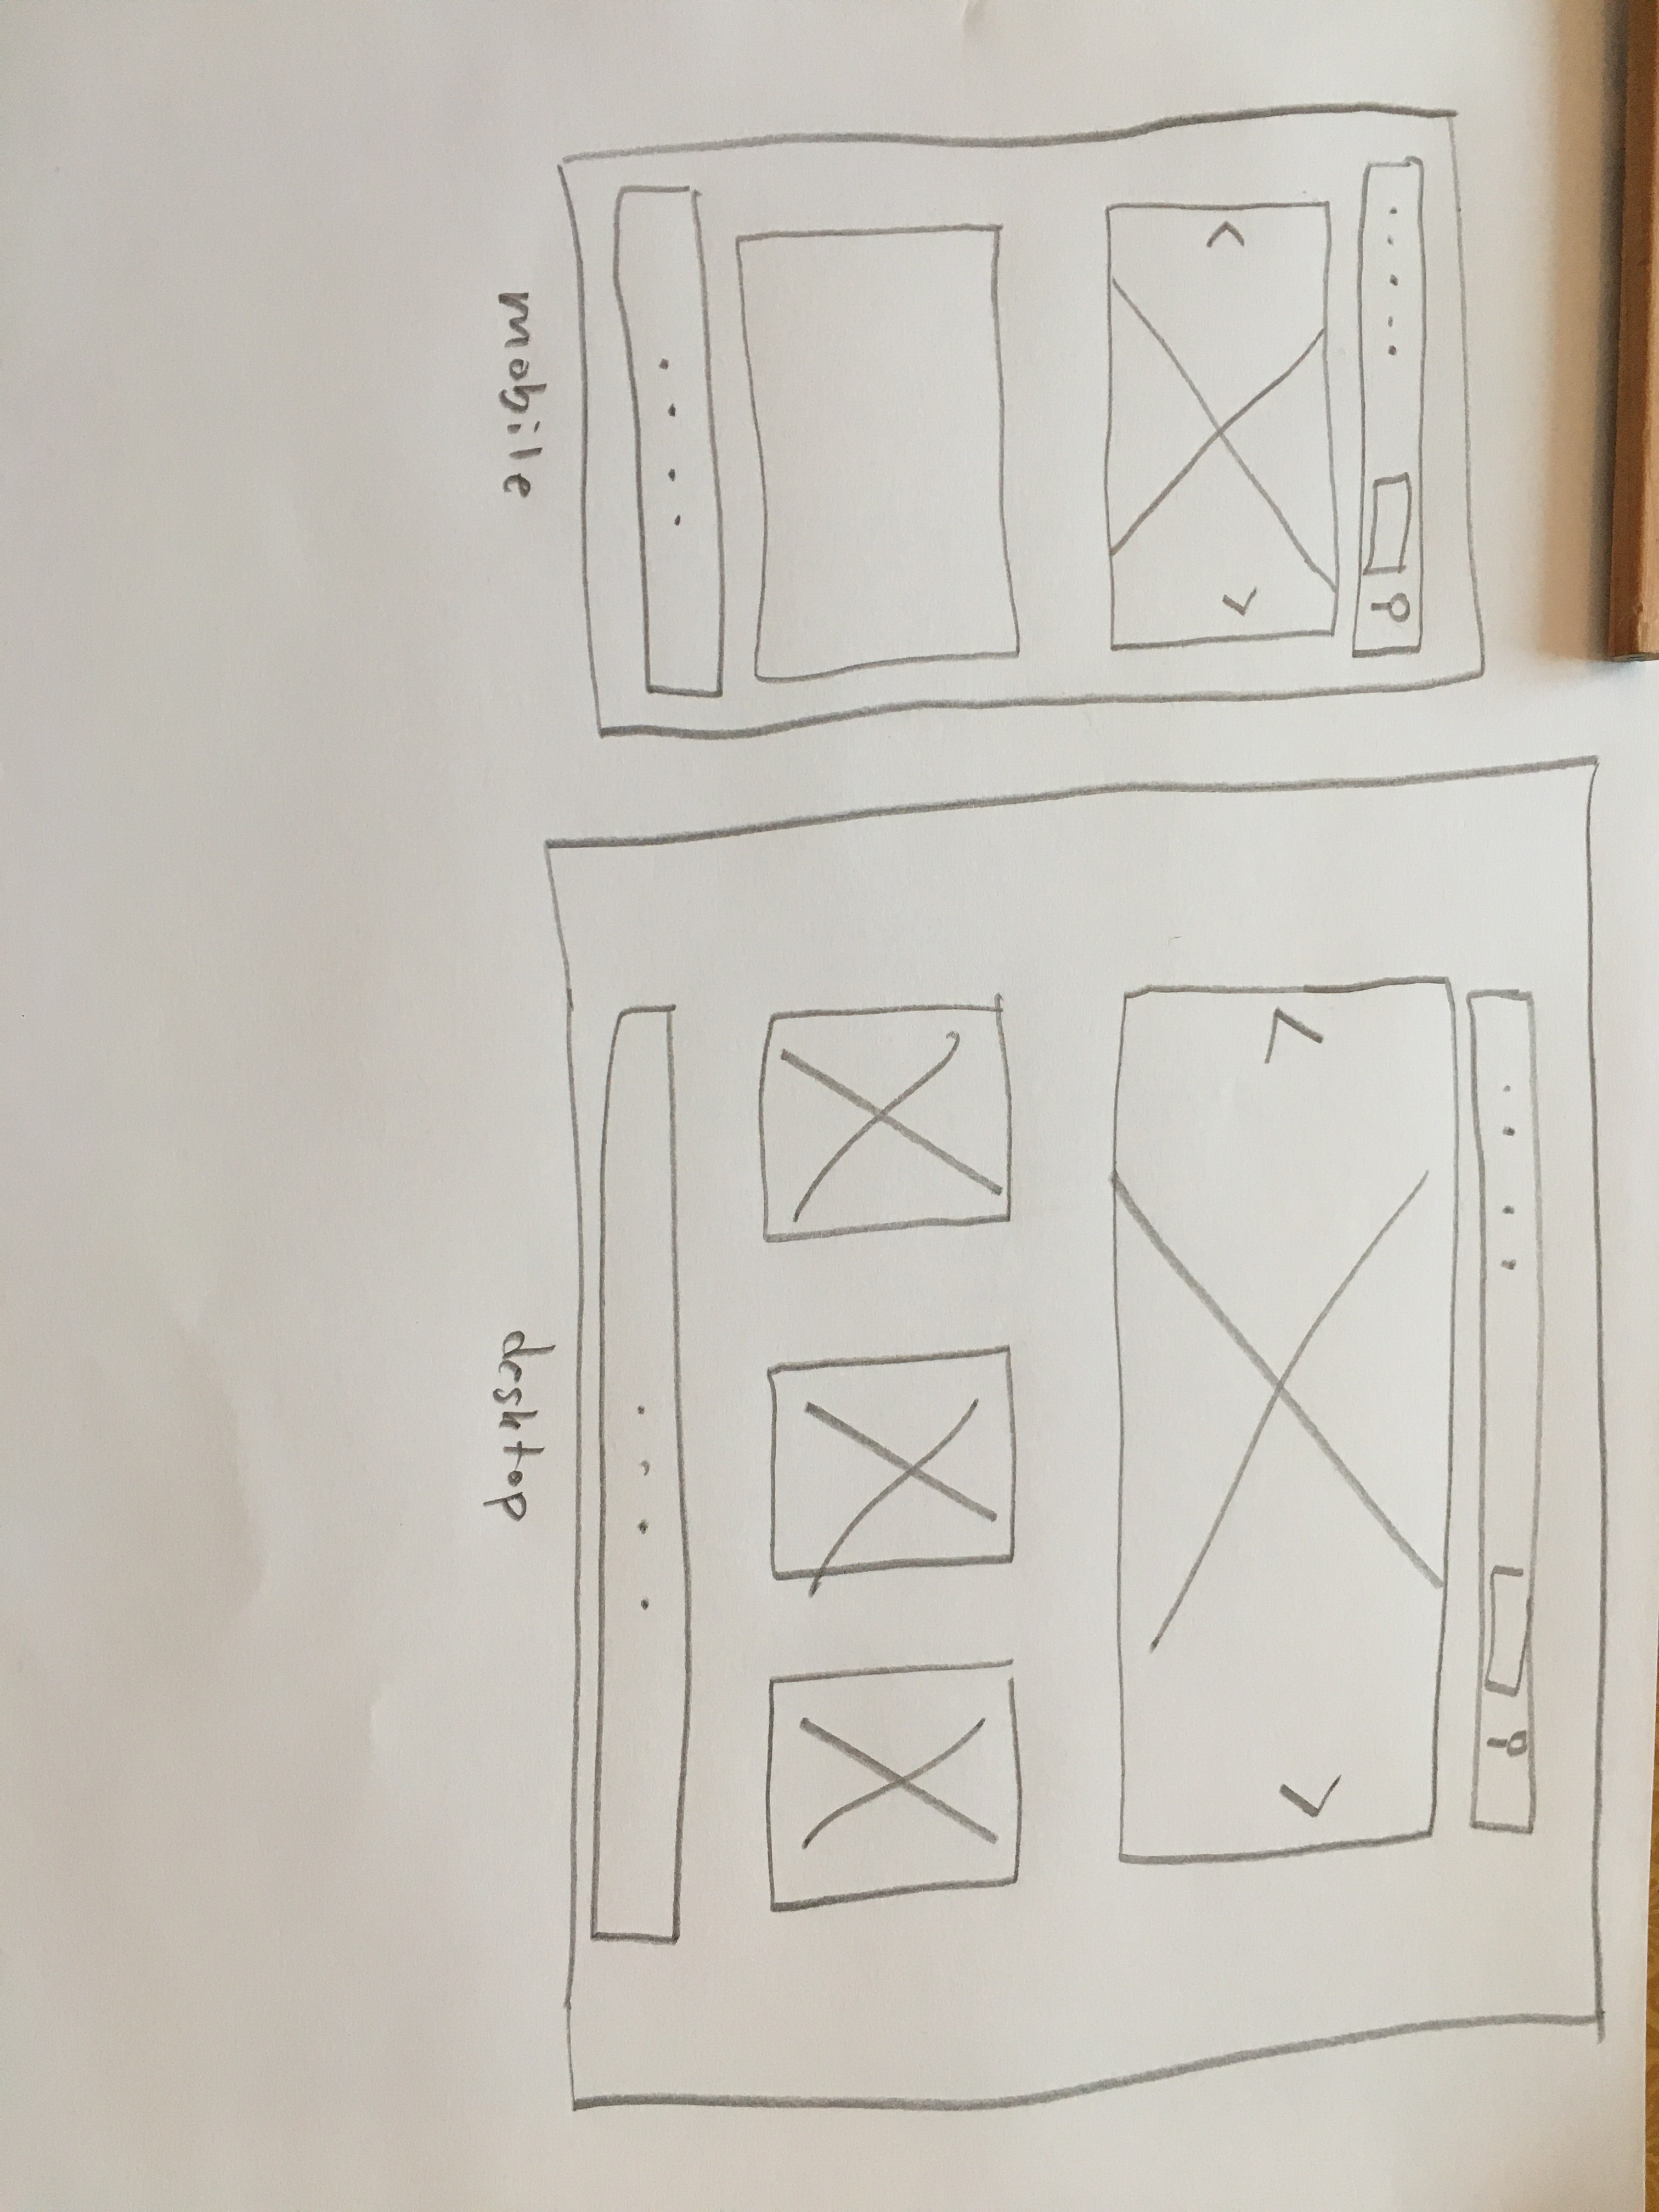 mobile
desktop